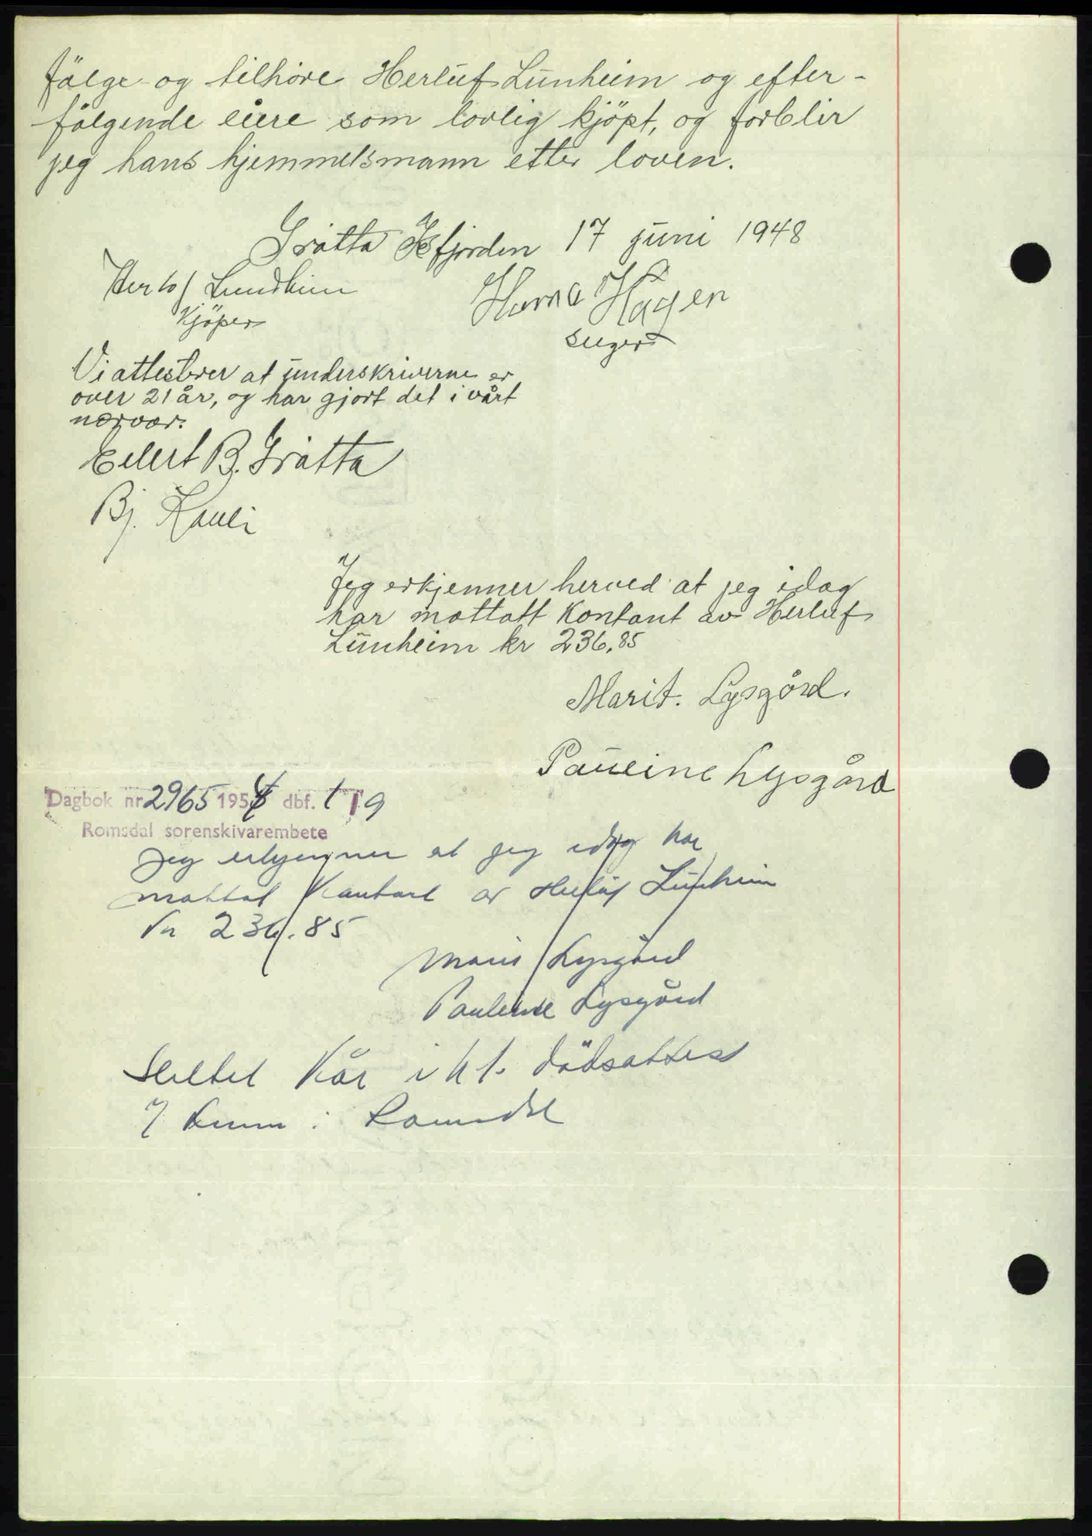 fölge og tilhöre Herluf Lünheim og efter-
fölgende eiere som lovlig kjöpt, og forblir
jeg hans hjemmelsmann etter loven.
Gråtta Isfjorden 17 juni 1948
Lundheim
Kjöper
Hagen
Selger
Vi attesterer at ünderskriverne er
over 21 år, og har gjort det i vårt
nærvær.
Eilert B. Gråtta
Bj.
Jeg erkjenner herved at jeg idag
har mottatt Kontant av Herluf
Lünheim kr 236.85
Marit. Lysgård.
Pauline Lysgård
Dagbok nr 2965 195 dbf. t 19
Romsdal sorenskivarembete
Jeg erkjenner at jeg idag har
mottat Kantant av Herluf Lünheim
Kr 236.85
Marit Lysgård
Pauline Lysgård
Slettet Kår i h.t. dödsattest
Romsdal